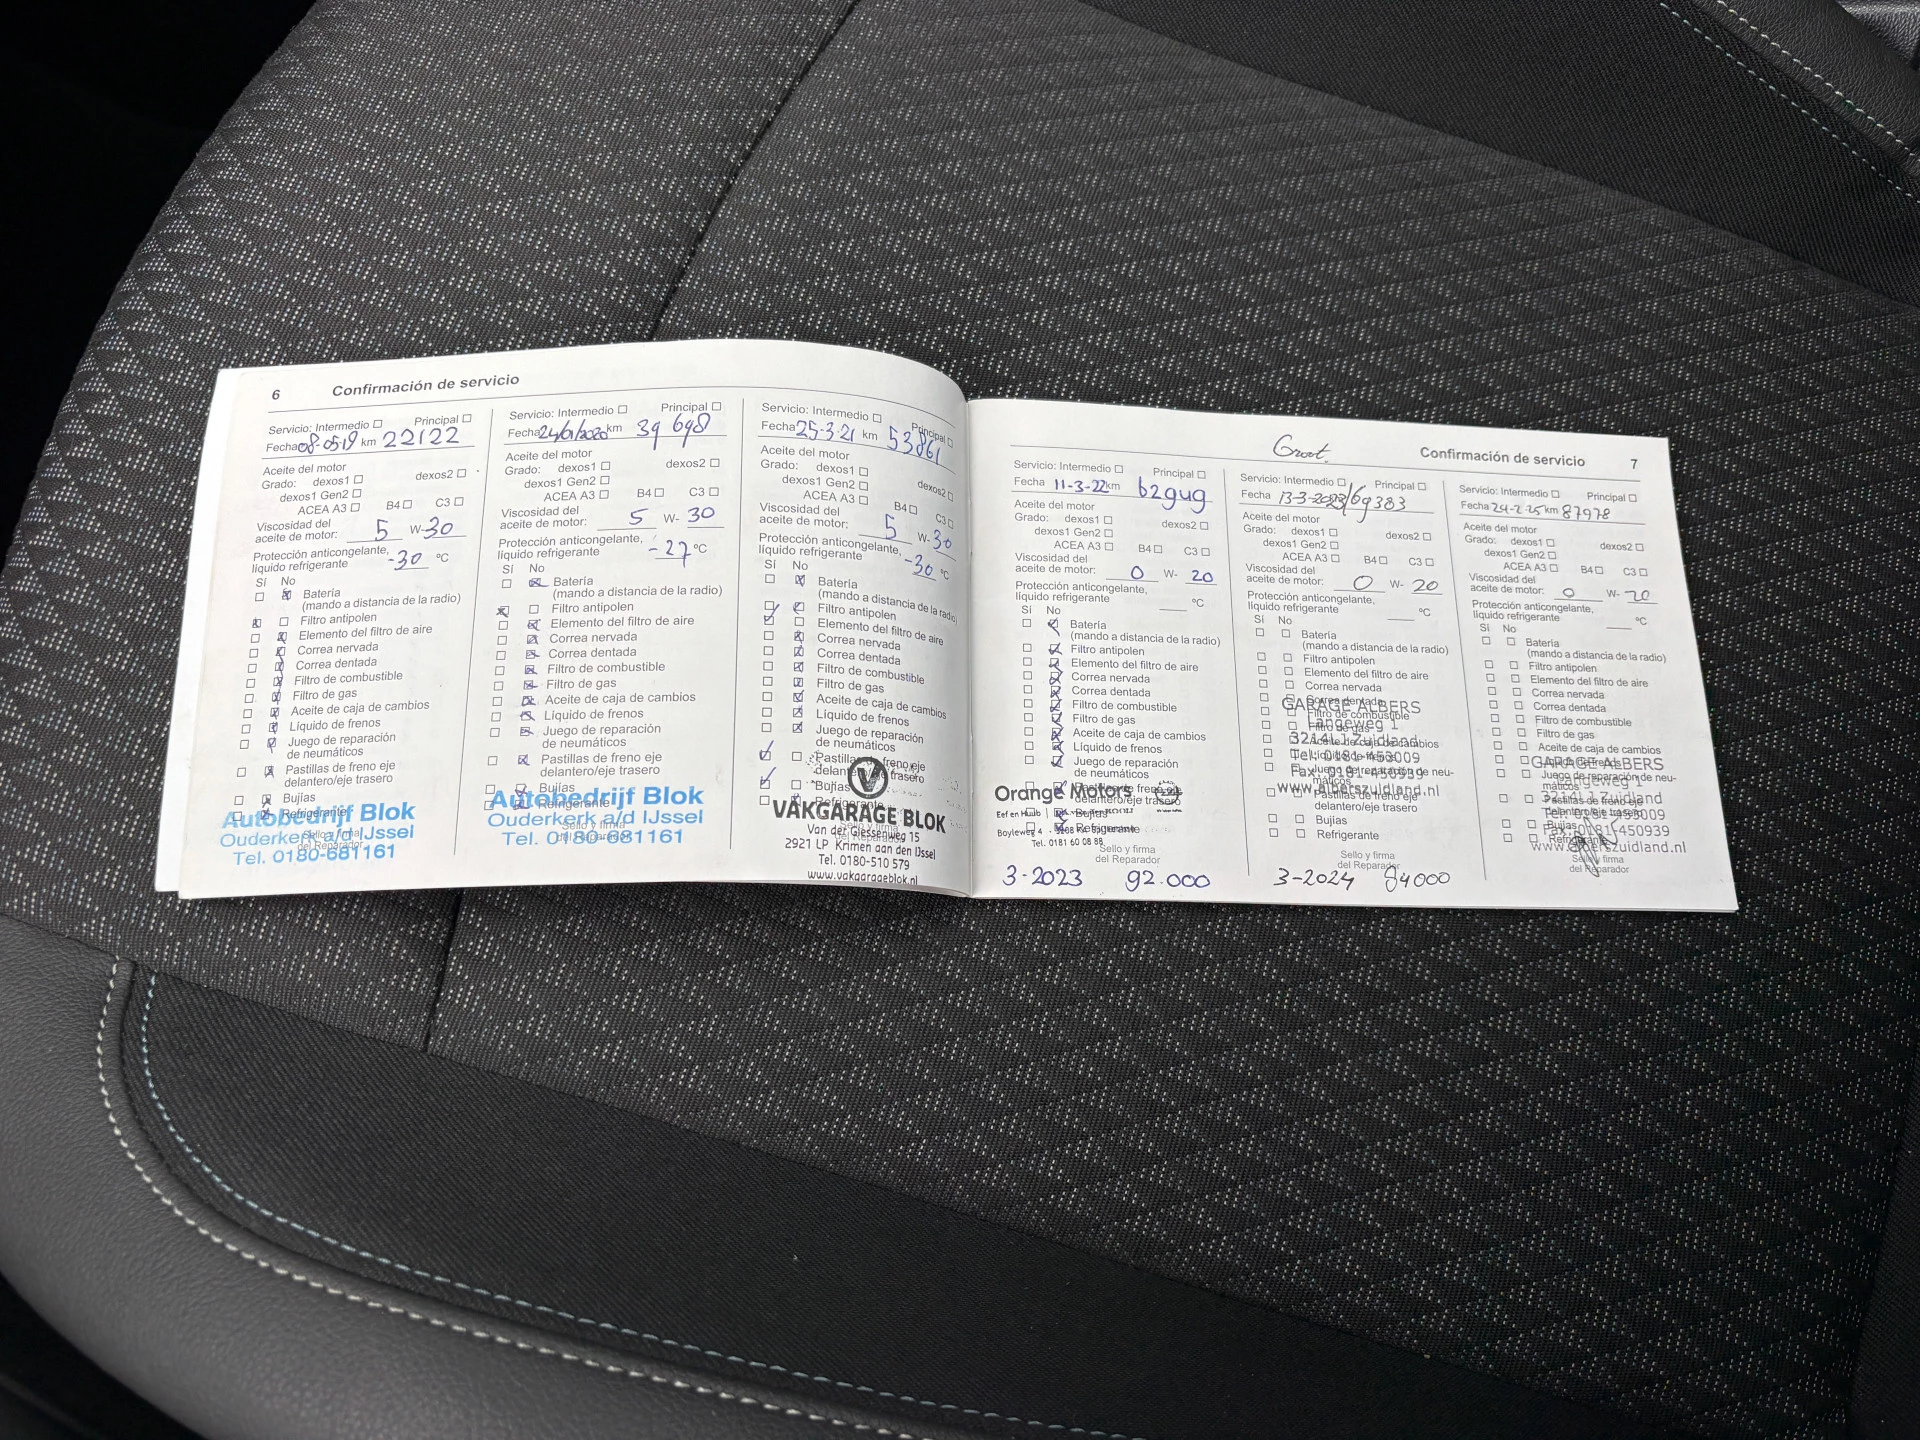 6 Confirmación de servicio
Servicio: Intermedio Principal
Fecha 08-05-19 km 22122
Aceite del motor
Grado: dexos1 dexos2
dexos1 Gen2
ACEA A3 B4 C3
Viscosidad del
aceite de motor: 5 W-30
Protección anticongelante,
líquido refrigerante -30 °C
Sí No
Batería
(mando a distancia de la radio)
Filtro antipolen
Elemento del filtro de aire
Correa nervada
Correa dentada
Filtro de combustible
Filtro de gas
Aceite de caja de cambios
Líquido de frenos
Juego de reparación
de neumáticos
Pastillas de freno eje
delantero/eje trasero
Bujías
Refrigerante
Sello y firma
del Reparador
Autobedrijf Blok
Ouderkerk a/d IJssel
Tel. 0180-681161
Servicio: Intermedio Principal
Fecha 24/01/2020 km 39 698
Aceite del motor
Grado: dexos1 dexos2
dexos1 Gen2
ACEA A3 B4 C3
Viscosidad del
aceite de motor: 5 W- 30
Protección anticongelante,
líquido refrigerante -27 °C
Sí No
Batería
(mando a distancia de la radio)
Filtro antipolen
Elemento del filtro de aire
Correa nervada
Correa dentada
Filtro de combustible
Filtro de gas
Aceite de caja de cambios
Líquido de frenos
Juego de reparación
de neumáticos
Pastillas de freno eje
delantero/eje trasero
Bujías
Refrigerante
Sello y firma
del Reparador
Autobedrijf Blok
Ouderkerk a/d IJssel
Tel. 0180-681161
Servicio: Intermedio Principal
Fecha 25-3-21 km 53861
Aceite del motor
Grado: dexos1 dexos2
dexos1 Gen2
ACEA A3 B4 C3
Viscosidad del
aceite de motor: 5 W-30
Protección anticongelante,
líquido refrigerante -30 °C
Sí No
Batería
(mando a distancia de la radio)
Filtro antipolen
Elemento del filtro de aire
Correa nervada
Correa dentada
Filtro de combustible
Filtro de gas
Aceite de caja de cambios
Líquido de frenos
Juego de reparación
de neumáticos
Pastillas de freno eje
delantero/eje trasero
Bujías
Refrigerante
Sello y firma
del Reparador
VAKGARAGE BLOK
Van der Giessenweg 15
2921 LP Krimpen aan den IJssel
Tel. 0180-510 579
www.vakgarageblok.nl
Groot.
Confirmación de servicio 7
Servicio: Intermedio Principal
Fecha 11-3-22 km 62949
Aceite del motor
Grado: dexos1 dexos2
dexos1 Gen2
ACEA A3 B4 C3
Viscosidad del
aceite de motor: 0 W- 20
Protección anticongelante,
líquido refrigerante °C
Sí No
Batería
(mando a distancia de la radio)
Filtro antipolen
Elemento del filtro de aire
Correa nervada
Correa dentada
Filtro de combustible
Filtro de gas
Aceite de caja de cambios
Líquido de frenos
Juego de reparación
de neumáticos
Pastillas de freno eje
delantero/eje trasero
Bujías
Refrigerante
Sello y firma
del Reparador
Orange Motors
Boyleweg 4
Tel. 0181 60 08 88
3-2023 92.000
Servicio: Intermedio Principal
Fecha 13-3-2023/69383
Aceite del motor
Grado: dexos1 dexos2
dexos1 Gen2
ACEA A3 B4 C3
Viscosidad del
aceite de motor: 0 W- 20
Protección anticongelante,
líquido refrigerante °C
Sí No
Batería
(mando a distancia de la radio)
Filtro antipolen
Elemento del filtro de aire
Correa nervada
Correa dentada
Filtro de combustible
Filtro de gas
Aceite de caja de cambios
Líquido de frenos
Juego de reparación de neu-
máticos
Pastillas de freno eje
delantero/eje trasero
Bujías
Refrigerante
Sello y firma
del Reparador
GARAGE ALBERS
Langeweg 1
3214LJ Zuidland
Tel. 0181-453009
Fax. 0181-450939
www.alberszuidland.nl
3-2024 84000
Servicio: Intermedio Principal
Fecha 24-2-25 km 87978
Aceite del motor
Grado: dexos1 dexos2
dexos1 Gen2
ACEA A3 B4 C3
Viscosidad del
aceite de motor: 0 W- 20
Protección anticongelante,
líquido refrigerante °C
Sí No
Batería
(mando a distancia de la radio)
Filtro antipolen
Elemento del filtro de aire
Correa nervada
Correa dentada
Filtro de combustible
Filtro de gas
Aceite de caja de cambios
Líquido de frenos
Juego de reparación de neu-
máticos
Pastillas de freno eje
delantero/eje trasero
Bujías
Refrigerante
Sello y firma
del Reparador
GARAGE ALBERS
Langeweg 1
3214LJ Zuidland
Tel. 0181-453009
Fax. 0181-450939
www.alberszuidland.nl